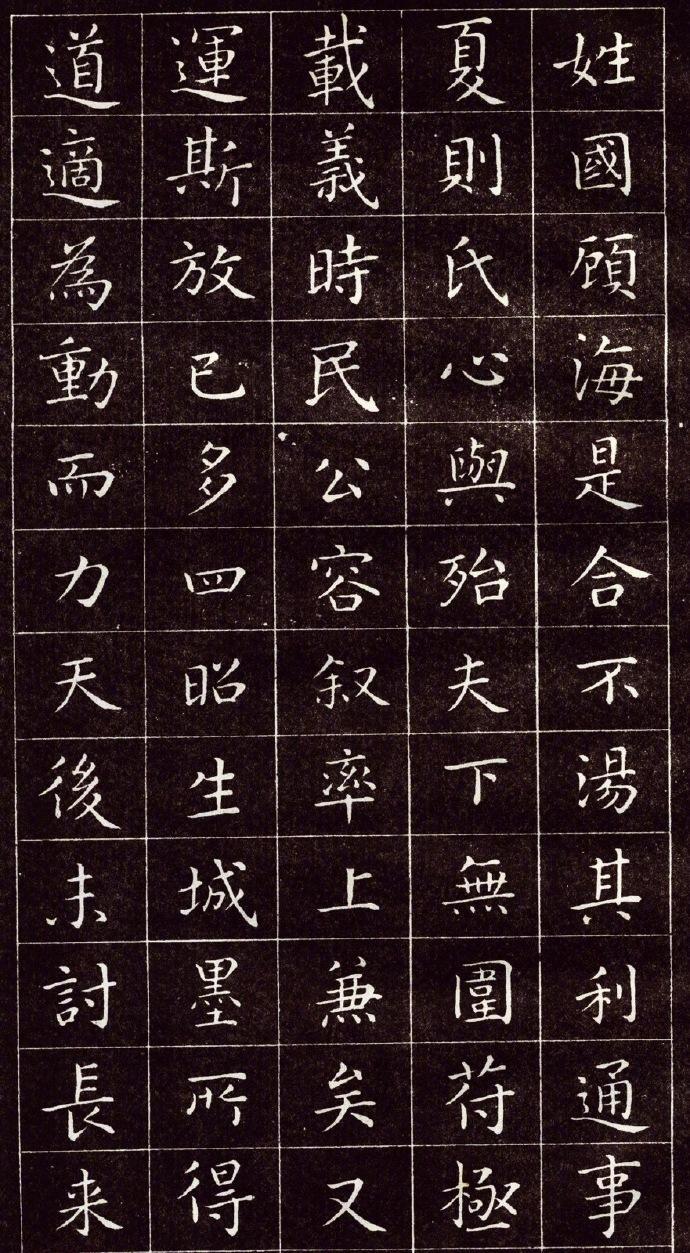 姓國顧海是合不湯其利通事
夏則氏心與殆夫下無圍符極
載義時民公容叙率上兼矣又
運斯放已多四昭生城墨所得
道適為動而力天後未討長来